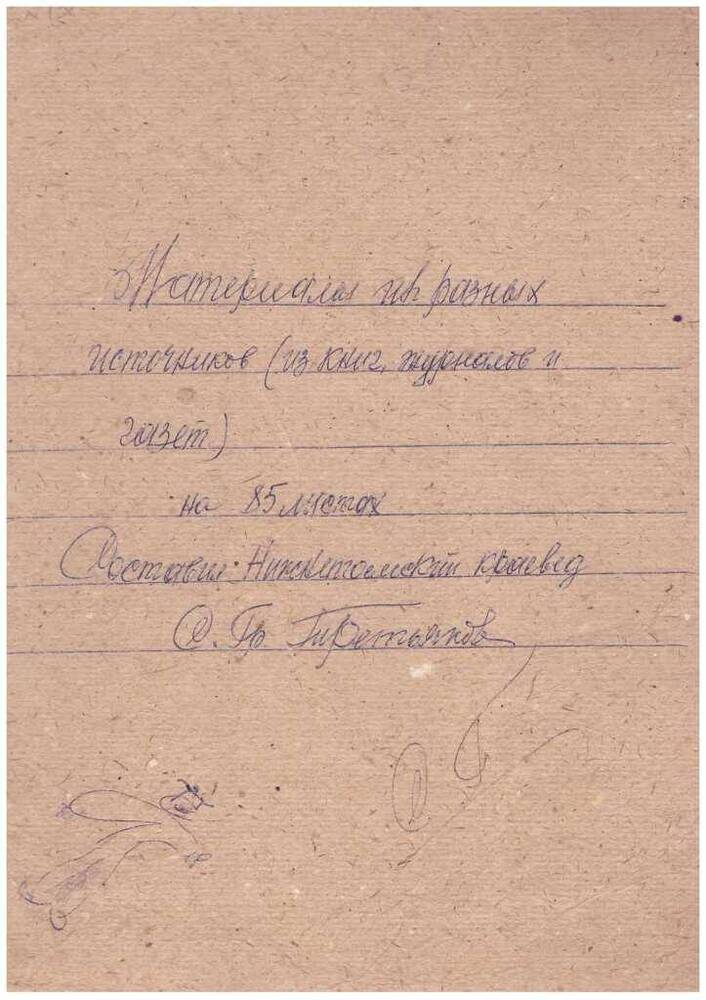 Материалы из разных
источников (из книг, журналов и
газет)
на 85 листах
Составил: Нижнетоемский краевед
С. Гр. Третьяков